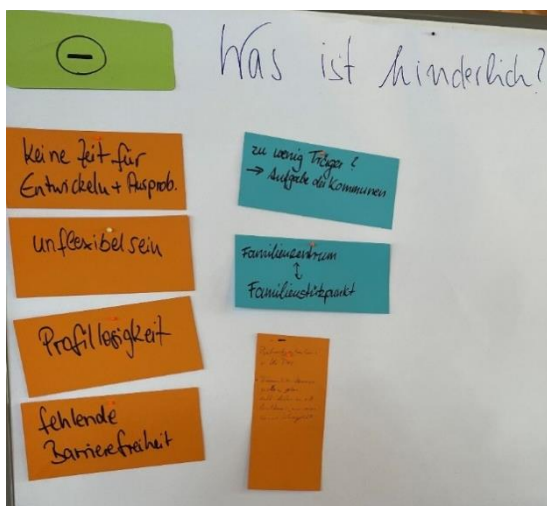 Was ist hinderlich?
keine Zeit für
Entwickeln + Ausprob.
unflexibel sein
Profillosigkeit
fehlende
Barrierefreiheit
zu wenig Träger?
→ Aufgabe der Kommunen
Familienzentrum
↕
Familienstützpunkt